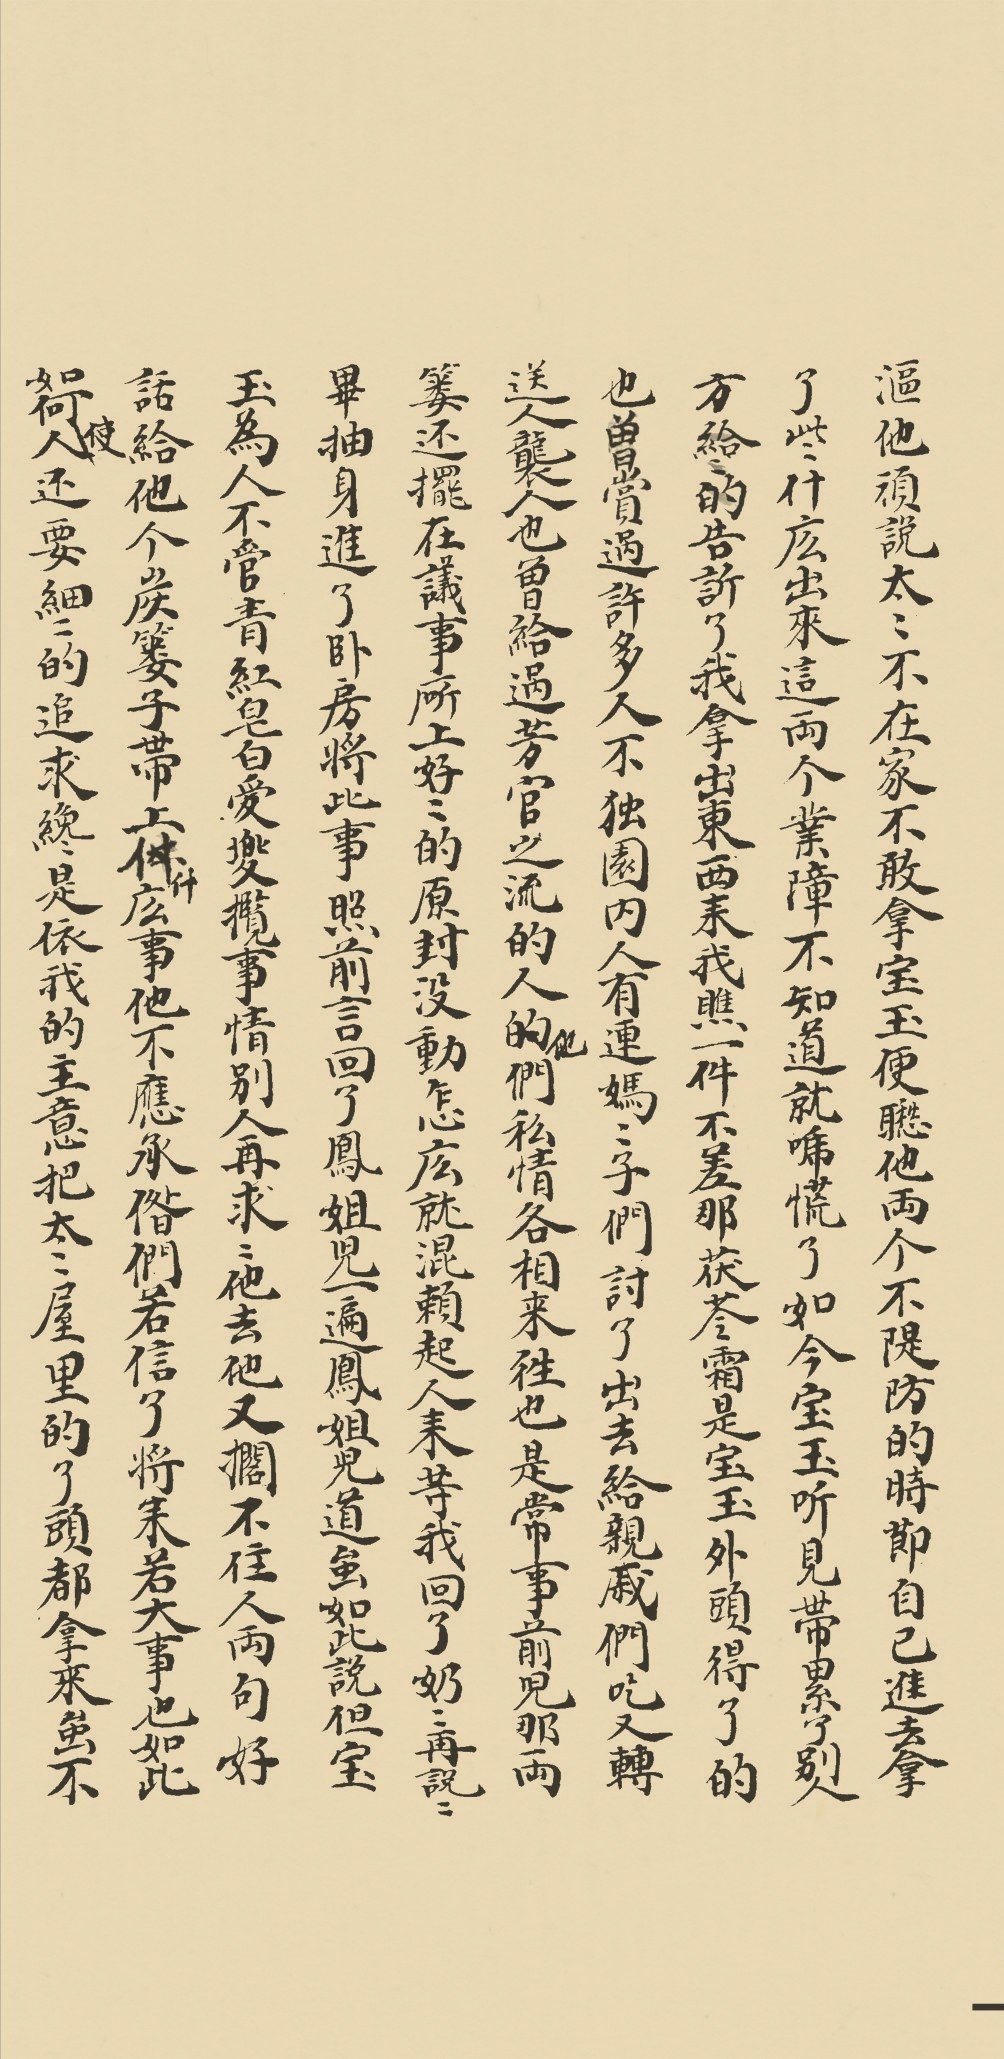 漚他頑説太〻不在家不敢拿宝玉便聴他両个不隄防的時節自己進去拿
了些〻什庅出來這両个業障不知道就唬慌了如今宝玉听見带累了别人
方給〻的告訴了我拿出東西来我瞧一件不差那茯苓霜是宝玉外頭得了的
也曽賞過許多人不独園内人有連媽〻子們討了出去給親戚們吃又轉
送人襲人也曽給過芳官之流的人的他們私情各相来徃也是常事前児那両
簍还擺在議事所上好〻的原封没動怎庅就混頼起人来等我回了奶〻再説〻
畢抽身進了卧房將此事照前言回了鳳姐児一遍鳳姐児道虽如此説但宝
玉為人不管青紅皂白愛攬事情别人再求〻他去他又擱不住人両句好
話給他个炭簍子带上什庅事他不應承偺們若信了將来若大事也如此
如何使人还要細〻的追求纔〻是依我的主意把太〻屋里的了頭都拿來虽不